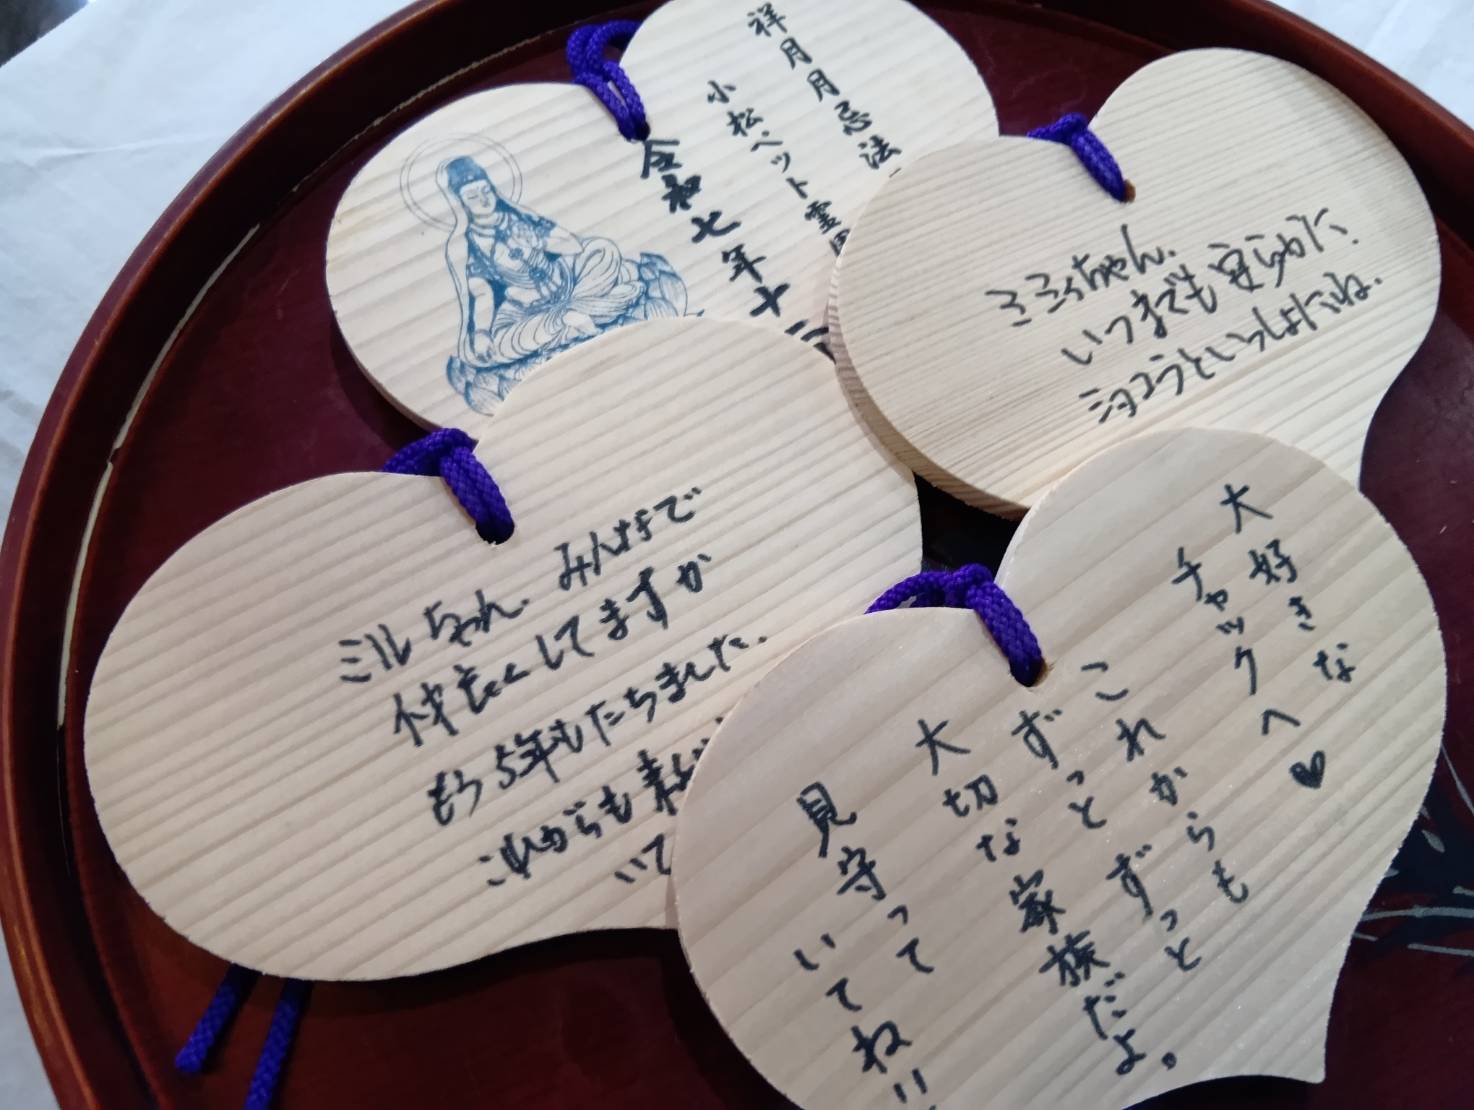 祥月月忌法
小松ペット霊園
令和七年十二
ミミィちゃん.
いつまでも安らかに.
ショコラといっしょにね.
ミルちゃん. みんなで
仲良くしてますか
もう5年もたちました.
これからも
いて
大好きな
チャックへ♥
これからも
ずっとずっと
大切な家族だよ。
見守って
いてね!!